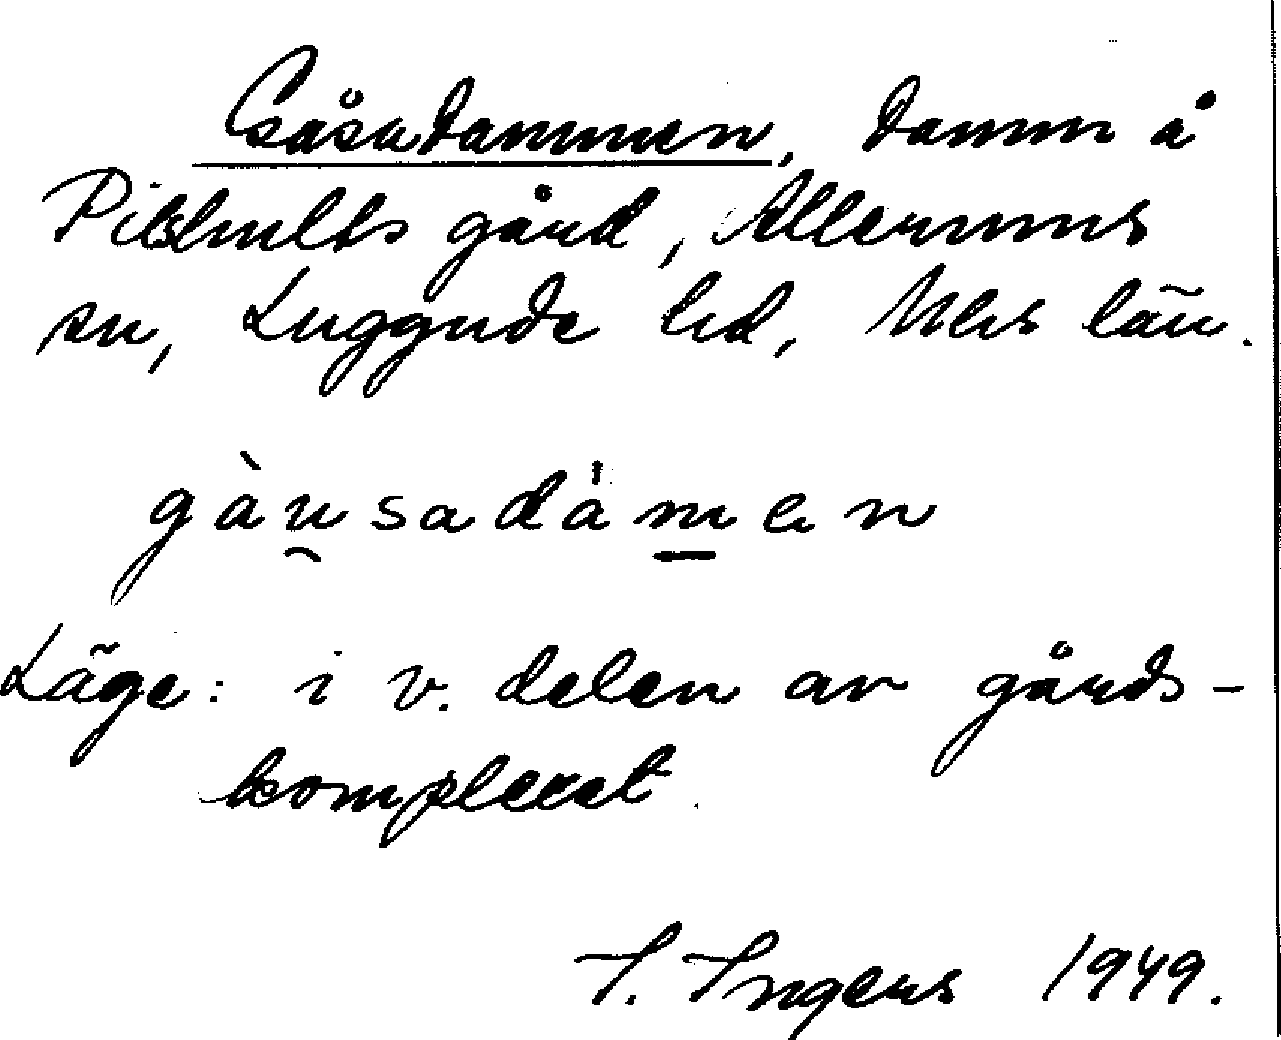 Gåsadammen, damm å
Pilshults gård, Allerums
sn, Luggude hd, Mhs län.
gàu̯sadámen
Läge: i v. delen av gårds-
komplexet.
I. Ingers 1949.